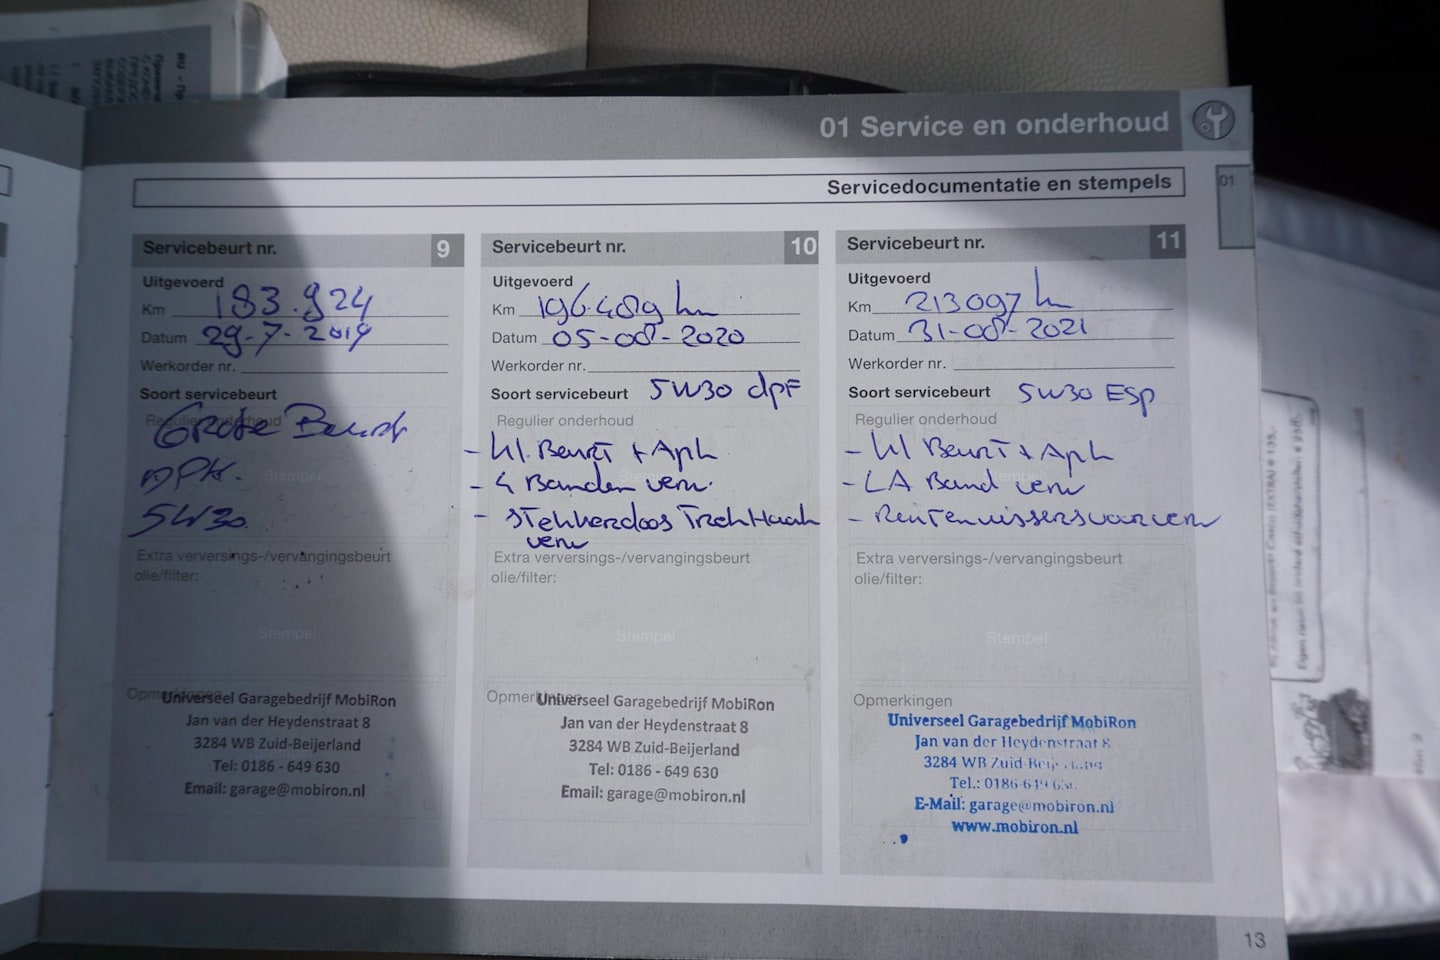 01 Service en onderhoud
01
Servicedocumentatie en stempels
Servicebeurt nr. 9
Uitgevoerd
Km 183.924
Datum 29-7-2019
Werkorder nr.
Soort servicebeurt
Regulier onderhoud
Grote Beurt
APK.
5W30
Stempel
Extra verversings-/vervangingsbeurt
olie/filter:
Stempel
Opmerkingen
Universeel Garagebedrijf MobiRon
Jan van der Heydenstraat 8
3284 WB Zuid-Beijerland
Tel: 0186 - 649 630
Email: garage@mobiron.nl
Servicebeurt nr. 10
Uitgevoerd
Km 196.489 km
Datum 05-08-2020
Werkorder nr.
Soort servicebeurt 5W30 dpF
Regulier onderhoud
- Kl. Beurt + Apk
Stempel
- 4 Banden verv.
- Stekkerdoos Trekhaak
verv
Extra verversings-/vervangingsbeurt
olie/filter:
Stempel
Opmerkingen
Universeel Garagebedrijf MobiRon
Jan van der Heydenstraat 8
3284 WB Zuid-Beijerland
Tel: 0186 - 649 630
Email: garage@mobiron.nl
Servicebeurt nr. 11
Uitgevoerd
Km 213097 km
Datum 31-08-2021
Werkorder nr.
Soort servicebeurt 5W30 ESP
Regulier onderhoud
- Kl Beurt + Apk
- LA Band verv
- Ruitenwissers voor verv
Extra verversings-/vervangingsbeurt
olie/filter:
Stempel
Opmerkingen
Universeel Garagebedrijf MobiRon
Jan van der Heydenstraat 8
3284 WB Zuid-Beijerland
Tel.: 0186-649 630
E-Mail: garage@mobiron.nl
www.mobiron.nl
13